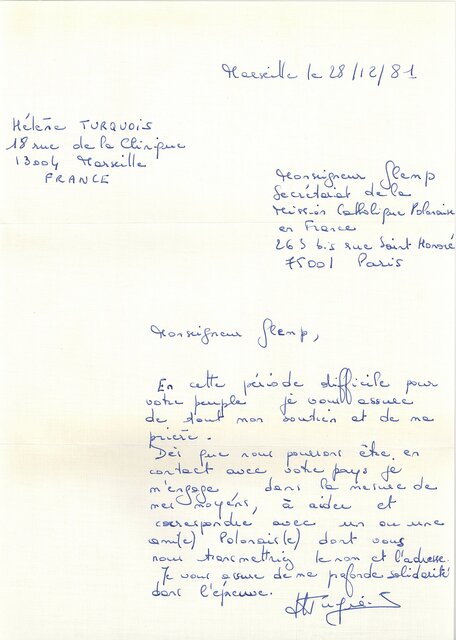 Marseille le 28/12/81
Hélène TURQUOIS
18 rue de la Clinique
13004 Marseille
FRANCE
Monseigneur Glemp
Secrétariat de la
Mission Catholique Polonaise
en France
263 bis rue Saint Honoré
75001 Paris
Monseigneur Glemp,
En cette période difficile pour
votre peuple je vous assure
de tout mon soutien et de ma
prière.
Dès que nous pourrons être en
contact avec votre pays je
m'engage dans la mesure de
mes moyens, à aider et
correspondre avec un ou une
ami(e) Polonais(e) dont vous
nous transmettriez le nom et l'adresse.
Je vous assure de ma profonde solidarité
dans l'épreuve.